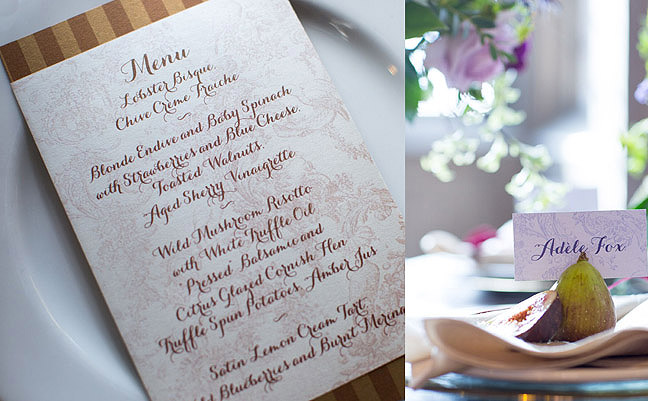 Menu
Lobster Bisque
Chive Crème Fraiche
Blonde Endive and Baby Spinach
with Strawberries and Blue Cheese,
Toasted Walnuts,
Aged Sherry Vinaigrette
Wild Mushroom Risotto
with White Truffle Oil
Pressed Balsamic and
Citrus Glazed Cornish Hen
Truffle Spun Potatoes, Amber Jus
Satin Lemon Cream Tart
Blueberries and Burnt
Adèle Fox